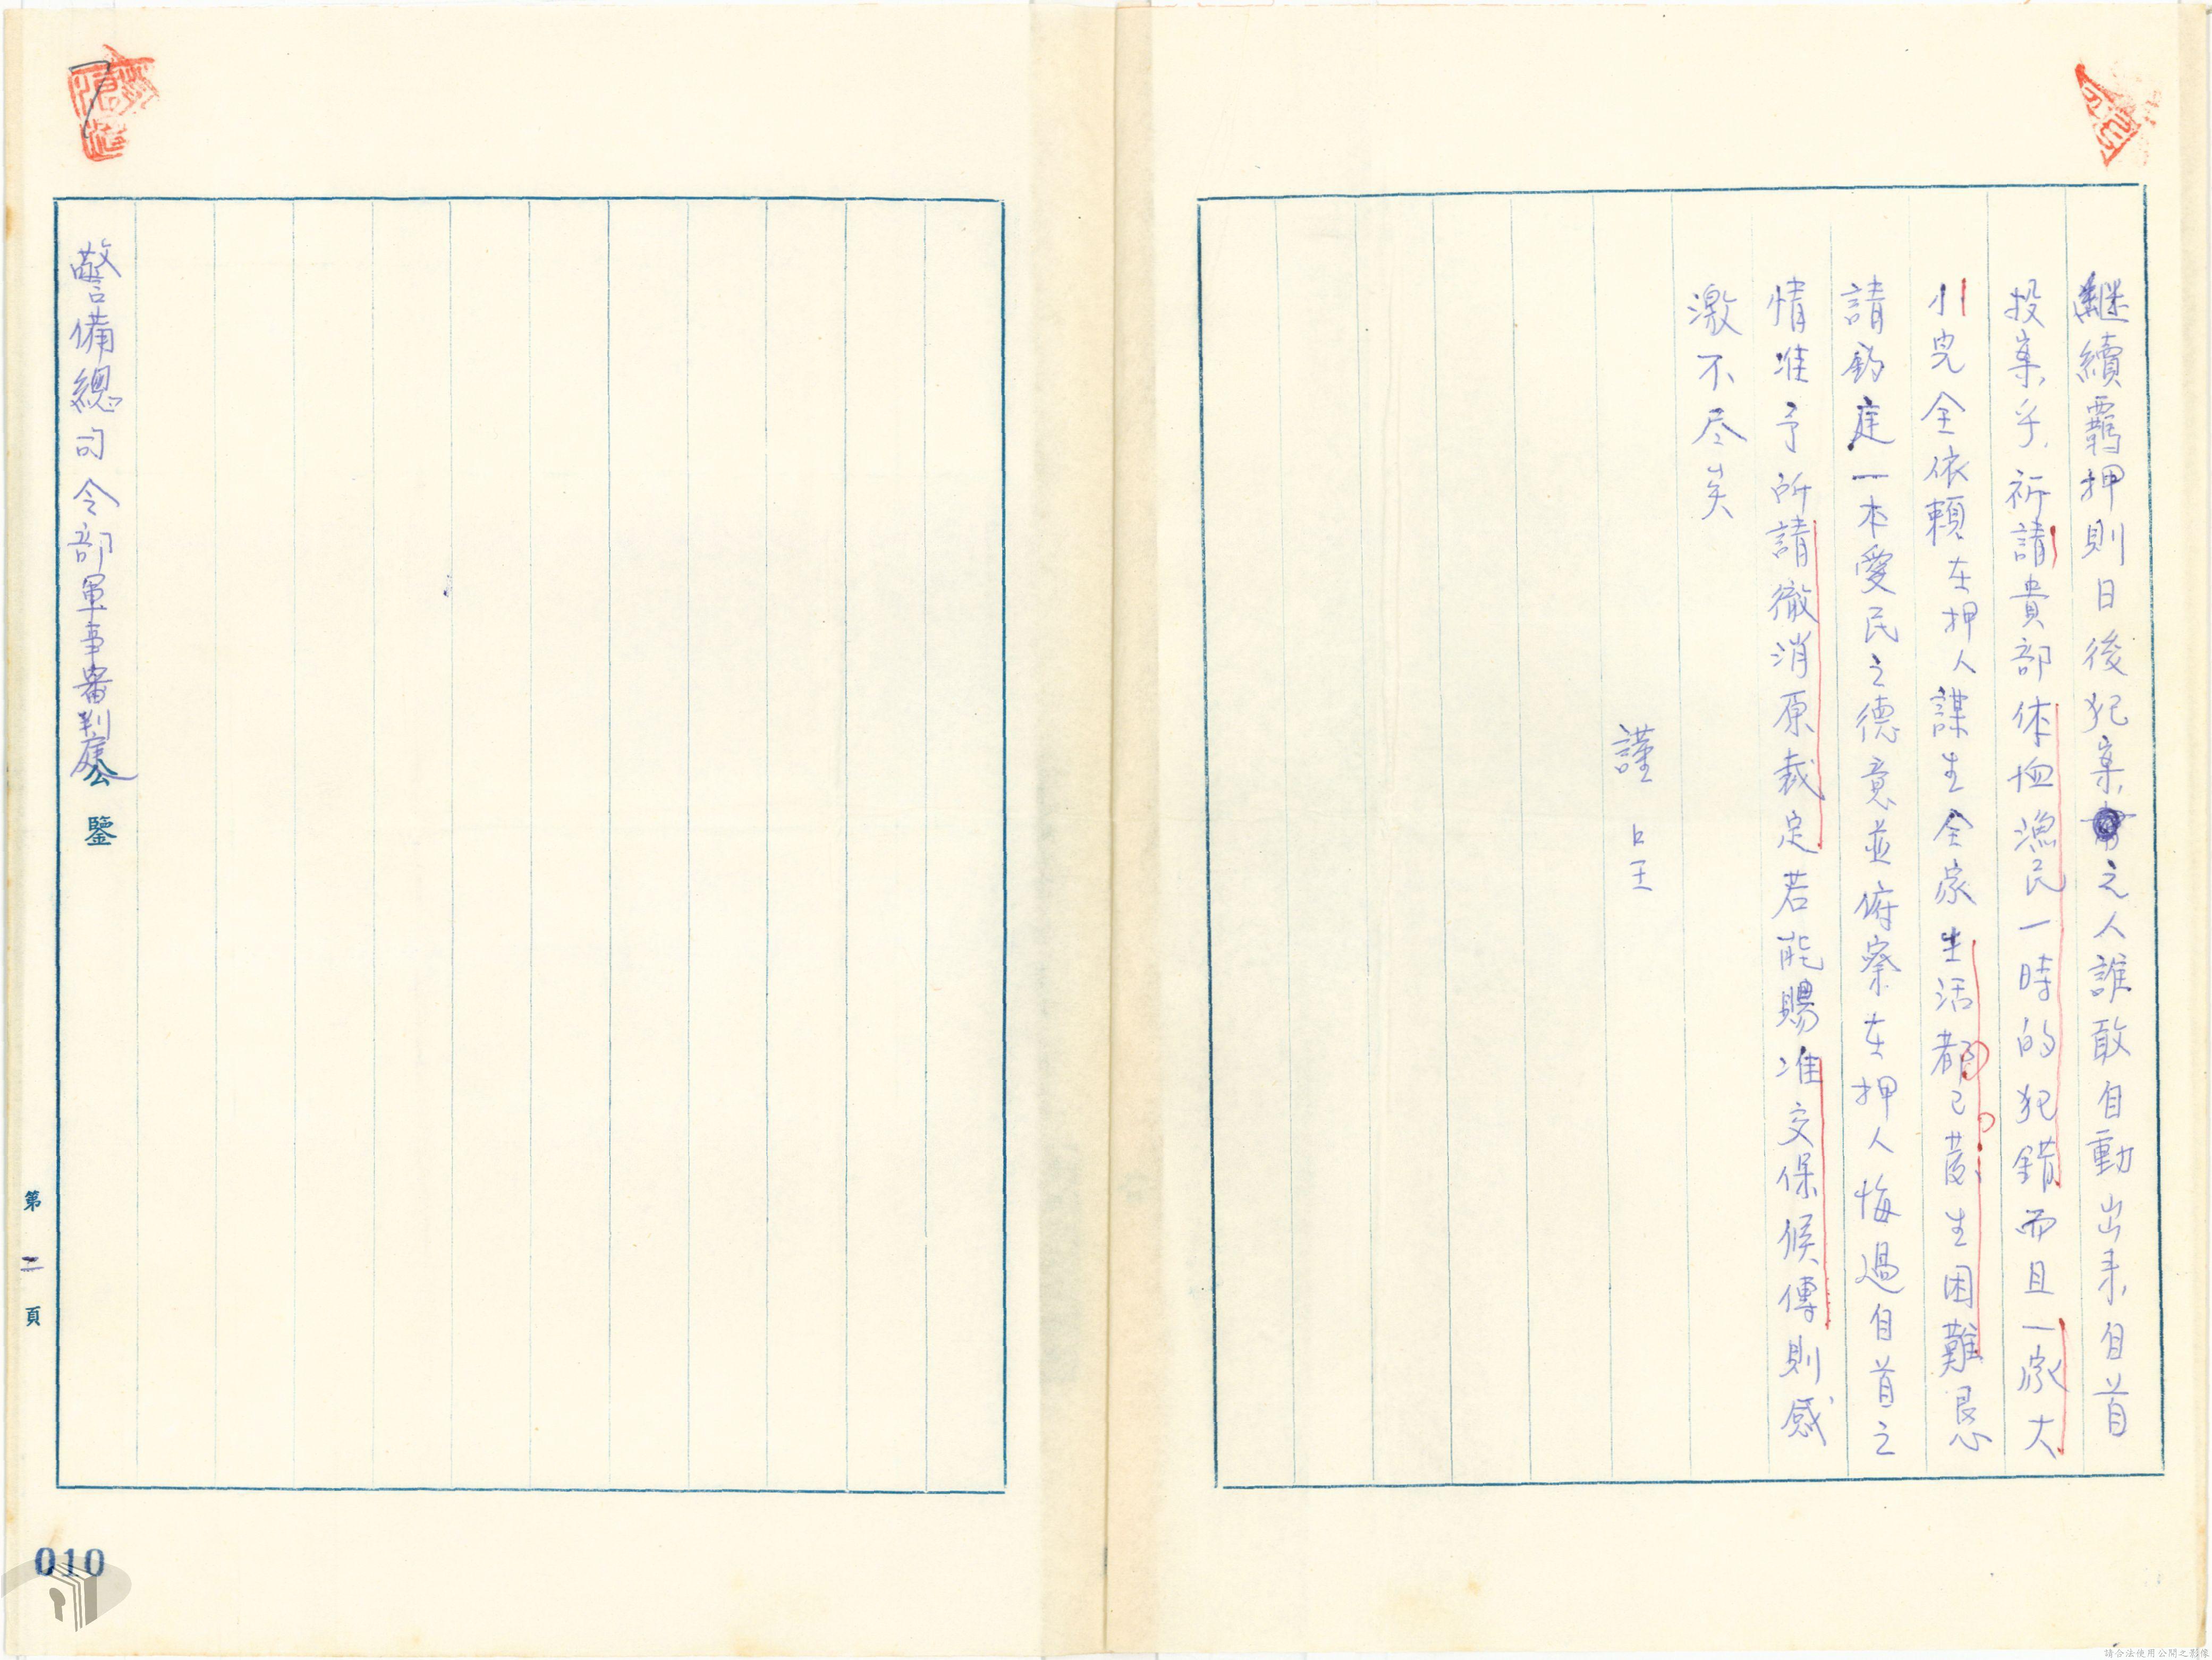 繼續羈押則日後犯案之人誰敢自動出來自首
投案乎祈請貴部体恤漁民一時的犯錯而且一家大
小皃全依賴在押人謀生全家生活都已發生困難恳
請鈞庭一本愛民之德意並俯察在押人悔過自首之
情准予所請徹消原裁定若能賜准交保候傳則感
激不尽矣
謹呈
警備總司令部軍事審判庭公鑒
第二頁
010
請合法使用公開之影像